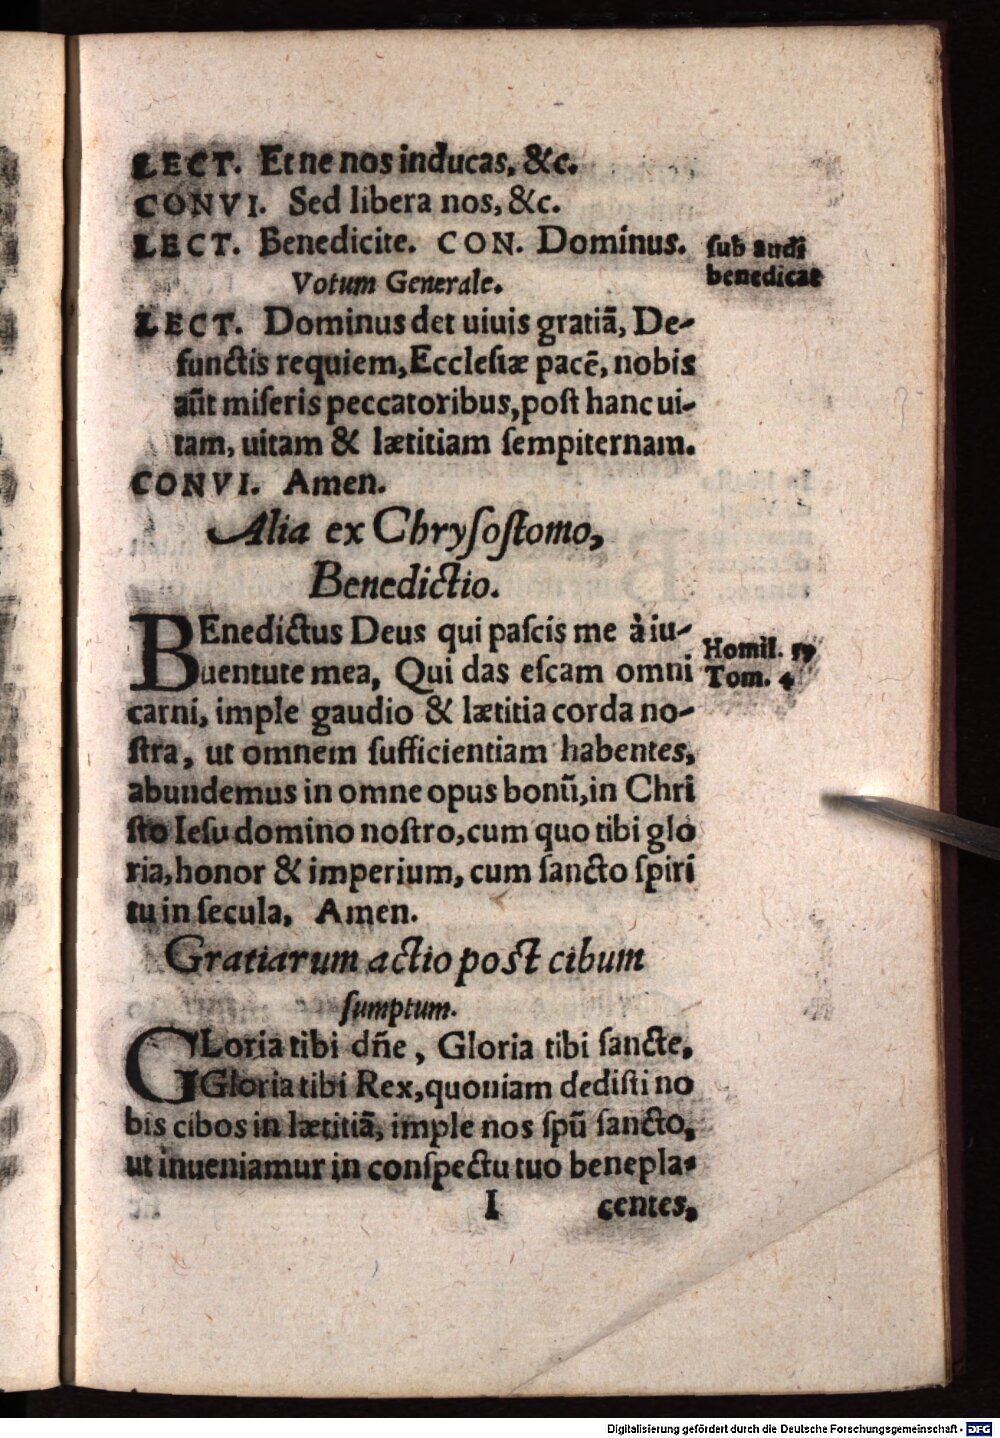 LECT. Et ne nos inducas, &c.
CONVI. Sed libera nos, &c.
LECT. Benedicite. CON. Dominus.
sub audi
benedicat
Votum Generale.
LECT. Dominus det uiuis gratiã, De-
functis requiem, Ecclesiæ pacẽ, nobis
aũt miseris peccatoribus, post hanc ui-
tam, uitam & lætitiam sempiternam.
CONVI. Amen.
Alia ex Chrysostomo,
Benedictio.
BEnedictus Deus qui pascis me à iu-
uentute mea, Qui das escam omni
Homil.
Tom. 4
carni, imple gaudio & lætitia corda no-
stra, ut omnem sufficientiam habentes,
abundemus in omne opus bonũ, in Chri
sto Iesu domino nostro, cum quo tibi glo
ria, honor & imperium, cum sancto spiri
tu in secula, Amen.
Gratiarum actio post cibum
sumptum.
GLoria tibi dñe, Gloria tibi sancte,
Gloria tibi Rex, quoniam dedisti no
bis cibos in lætitiã, imple nos spũ sancto,
ut inueniamur in conspectu tuo benepla-
I centes,
Digitalisierung gefördert durch die Deutsche Forschungsgemeinschaft - DFG